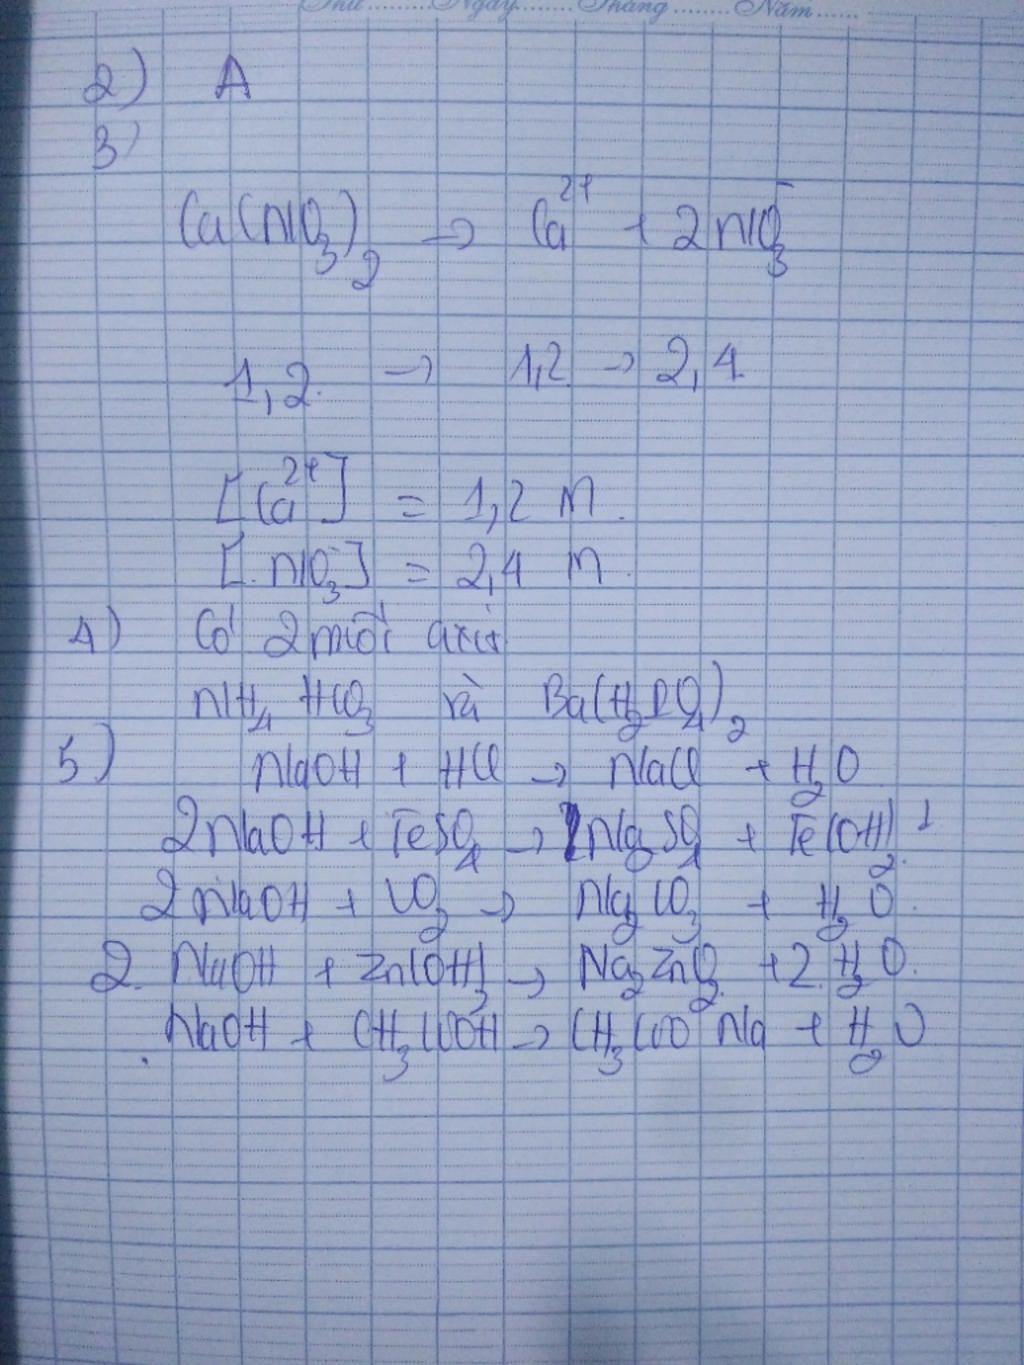 Thứ........Ngày........Tháng........Năm......
2) A
3)
Ca(NO₃)₂ → Ca²⁺ + 2NO₃⁻
1,2. → 1,2 → 2,4.
[Ca²⁺] = 1,2 M.
[NO₃⁻] = 2,4 M.
4) Có 2 muối axit
NH₄HCO₃ và Ba(H₂PO₄)₂
5) NaOH + HCl → NaCl + H₂O
2NaOH + FeSO₄ → Na₂SO₄ + Fe(OH)₂↓
2NaOH + CO₂ → Na₂CO₃ + H₂O.
2. NaOH + Zn(OH)₂ → Na₂ZnO₂ + 2.H₂O.
NaOH + CH₃COOH → CH₃COONa + H₂O